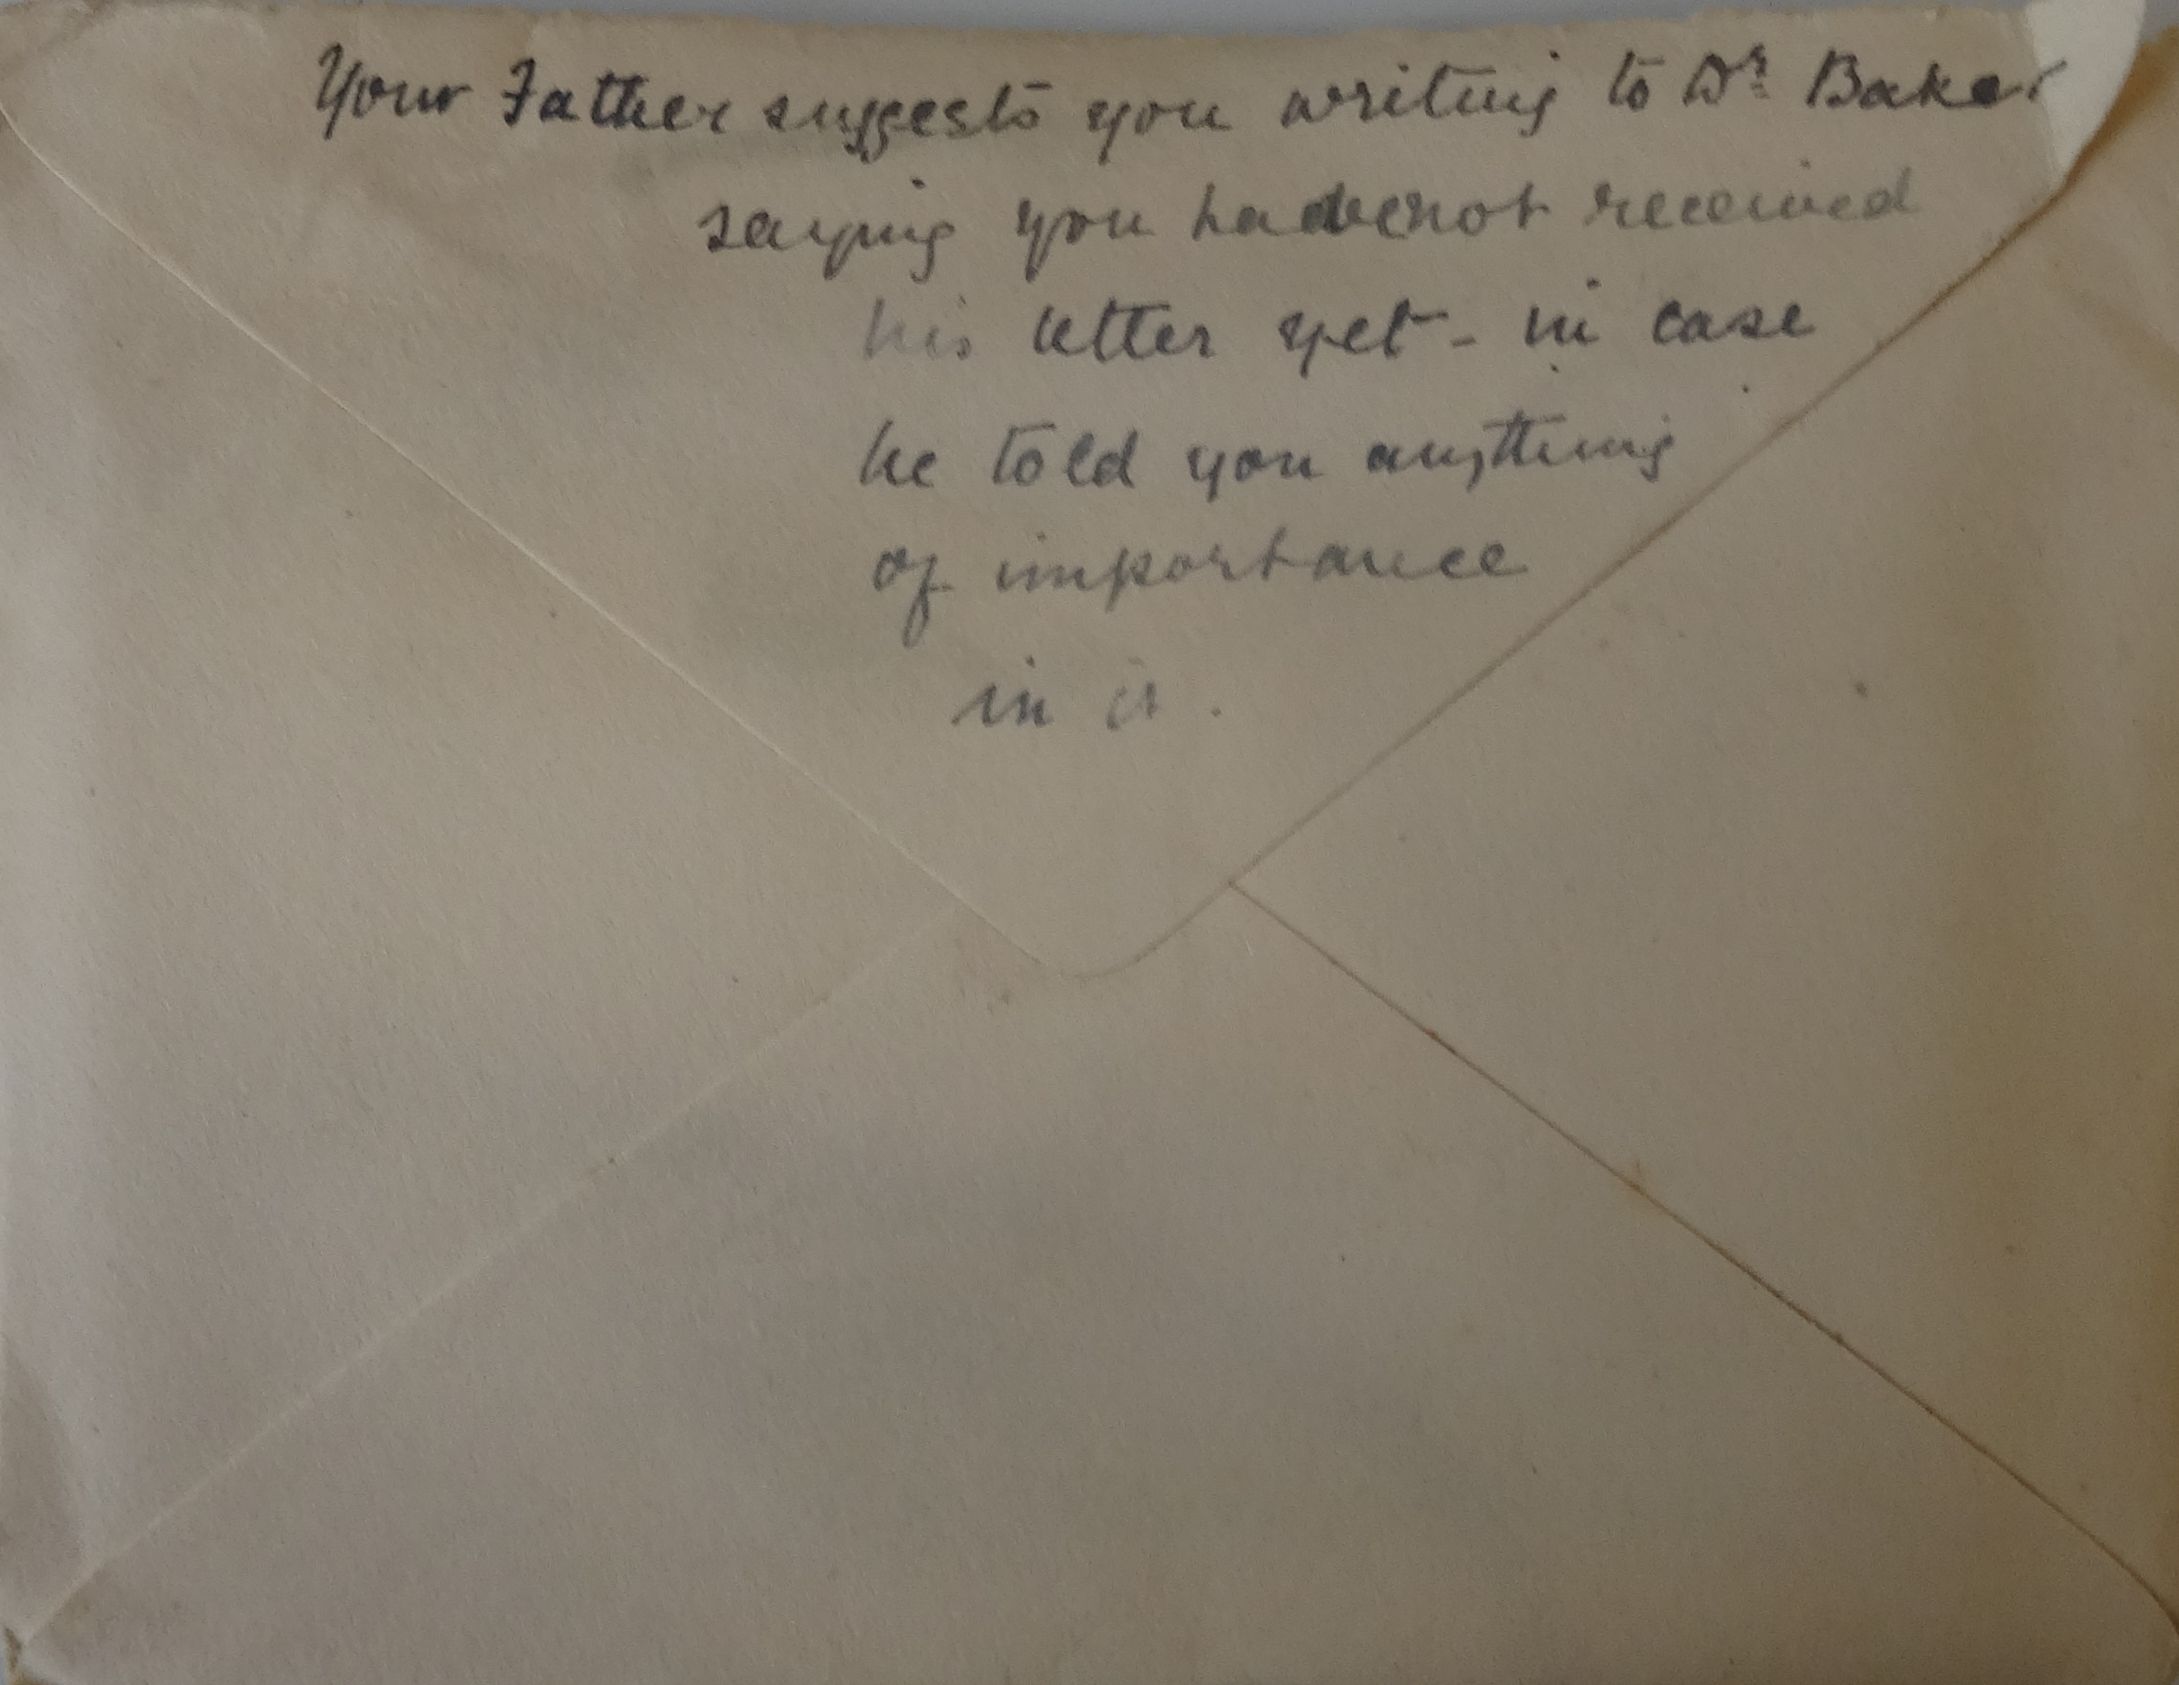 Your Father suggests you writing to Dr Baker
saying you have not received
his letter yet - in case
he told you anything
of importance
in it.